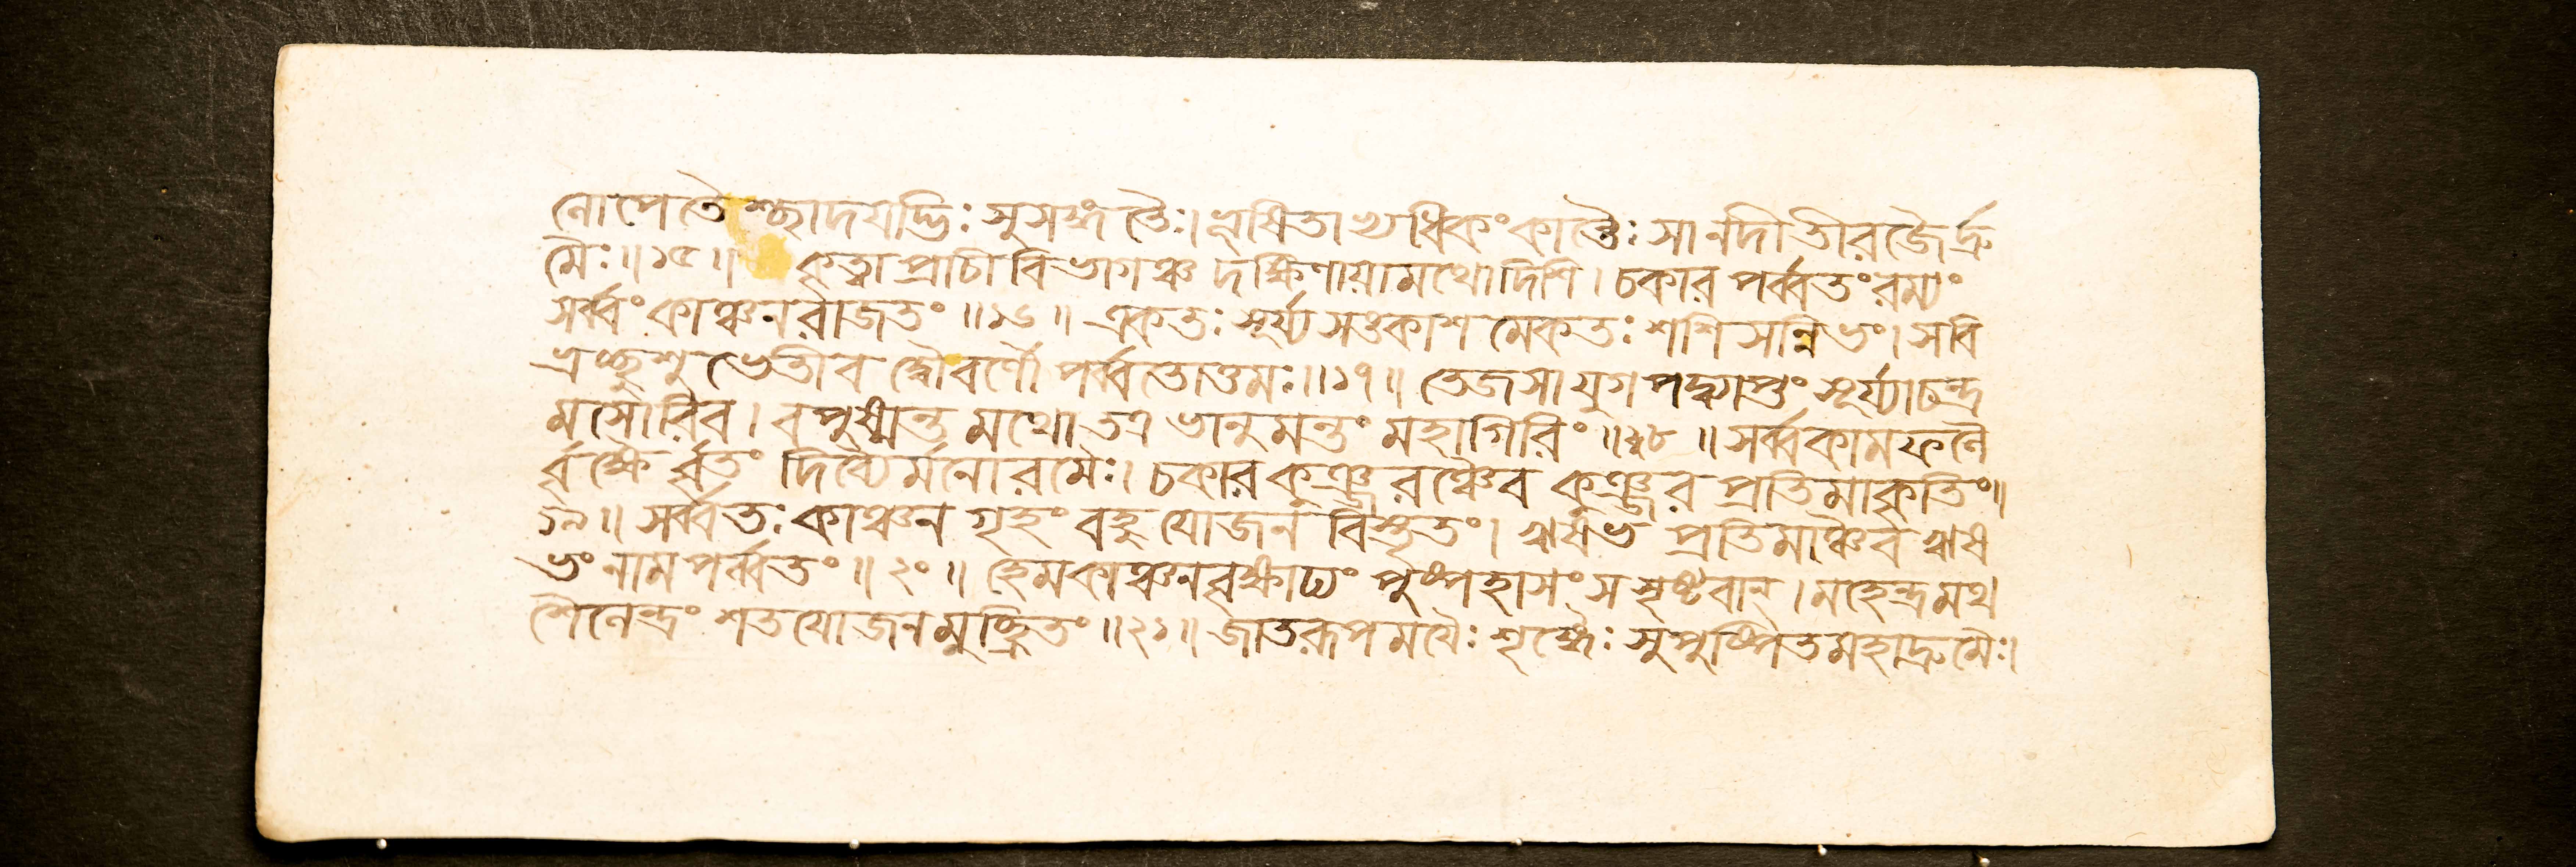 নোপেতৈশ্ছাদয়দ্ভিঃ সুসম্মতৈঃ। শুশুভে চাপ্যধিকং কান্তৈঃ সা নদী তীরজৈর্দ্রু
মৈঃ॥১৫॥ কৃত্বা প্রাচী বিভাগঞ্চ দক্ষিণায়ামথো দিশি। চকার পর্ব্বতং রম্যং
সর্ব্বং কাঞ্চনরাজতং॥১৬॥ একতঃ সূর্য্যসঙকাশ মেকতঃ শশিসন্নিভং। স বি
ভ্রচ্ছুশুভেতীব দ্বৌ বর্ণৌ পর্ব্বতোত্তমঃ॥১৭॥ তেজসা যুগপদ্ব্যাপ্তং সূর্য্যাচন্দ্র
মসোরিব। বপুষ্মন্তমথো তত্র ভানুমন্তং মহাগিরিং॥১৮॥ সর্ব্বকামফলৈ
র্বৃক্ষৈর্বৃতং দিব্যৈর্মনোরমৈঃ। চকার কুঞ্জরঞ্চৈব কুঞ্জর প্রতিমাকৃতিং॥
১৯॥ সর্ব্বতঃ কাঞ্চন গৃহং বহুযোজন বিস্তৃতং। ঋষভ প্রতিমাঞ্চৈব ঋষ
ভং নাম পর্ব্বতং॥২০॥ হেমকাঞ্চনবৃক্ষাঢ্যং পুষ্পহাসং স সৃষ্টবান্। মহেন্দ্রমথ
শৈলেন্দ্রং শতযোজনমুচ্ছ্রিতং॥২১॥ জাতরূপময়ৈঃ শৃঙ্গৈঃ সুপুষ্পিতমহাদ্রুমৈঃ।